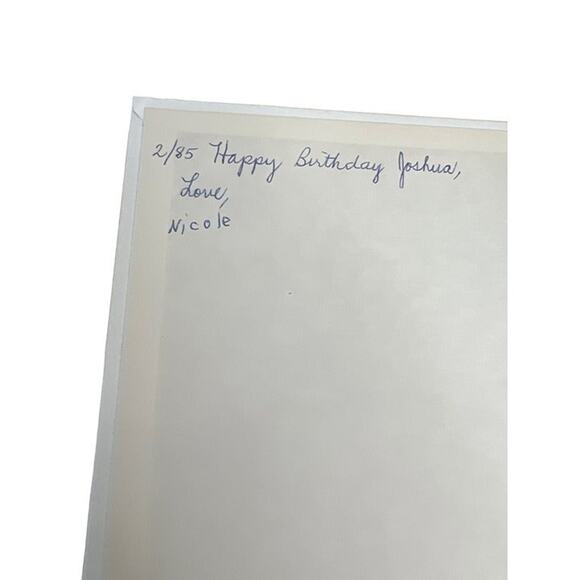 2/85 Happy Birthday Joshua,
Love,
Nicole